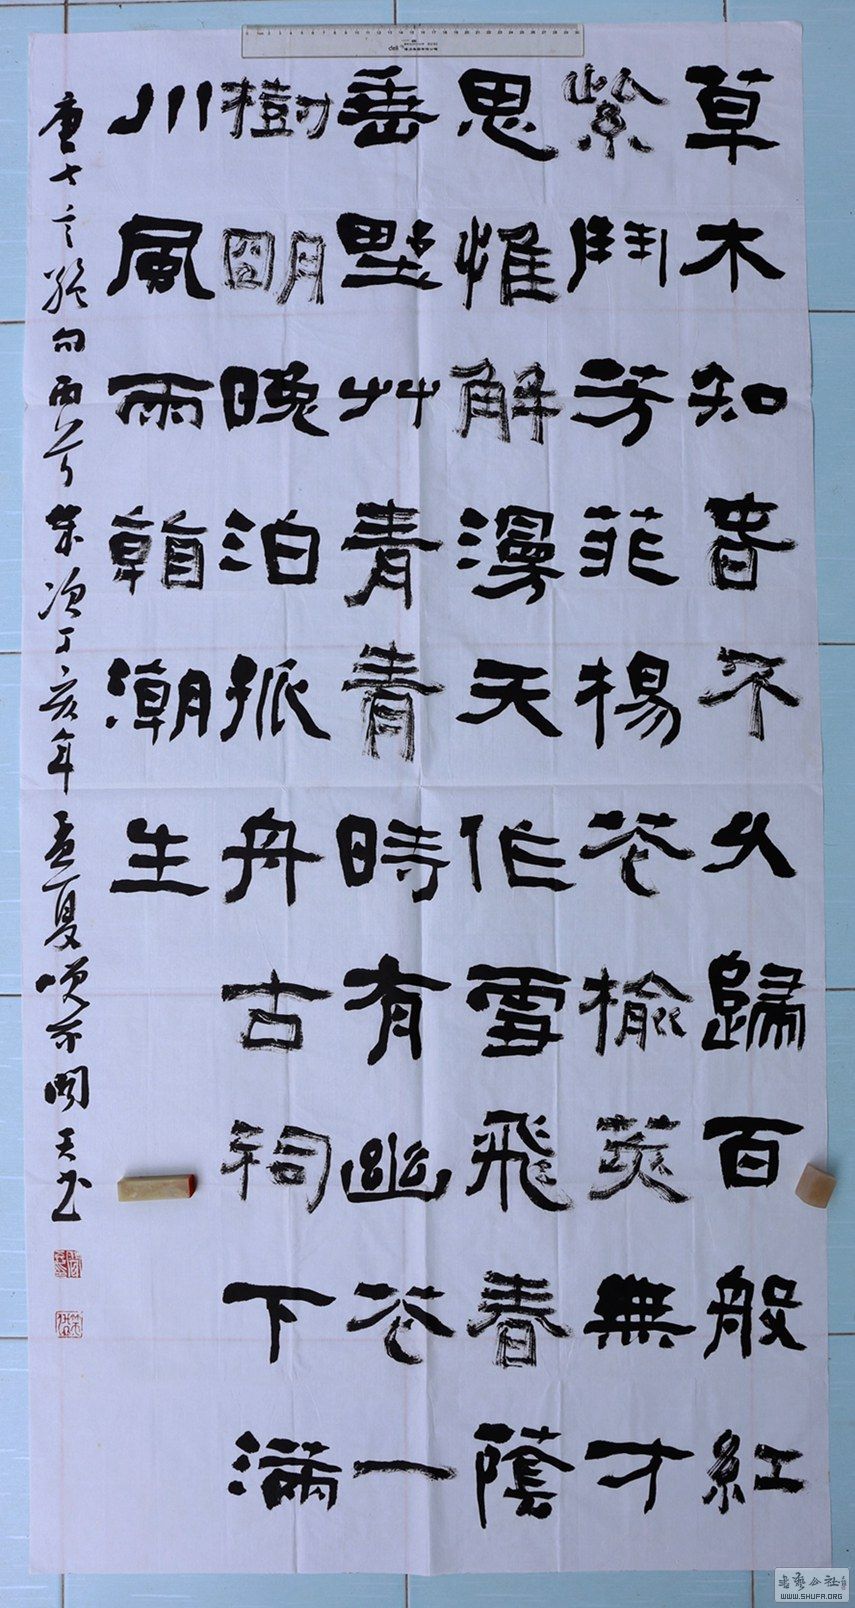 草木知音不久歸百般紅
紫鬥芳菲楊花榆莢無才
思惟解漫天作雪飛春蔭
垂野艸青青時有幽花一
樹明晚泊孤舟古祠下滿
川風雨看潮生
唐七言絕句兩首歲次丁亥年孟夏 閣天書
deli
WWW.SHUFA.ORG